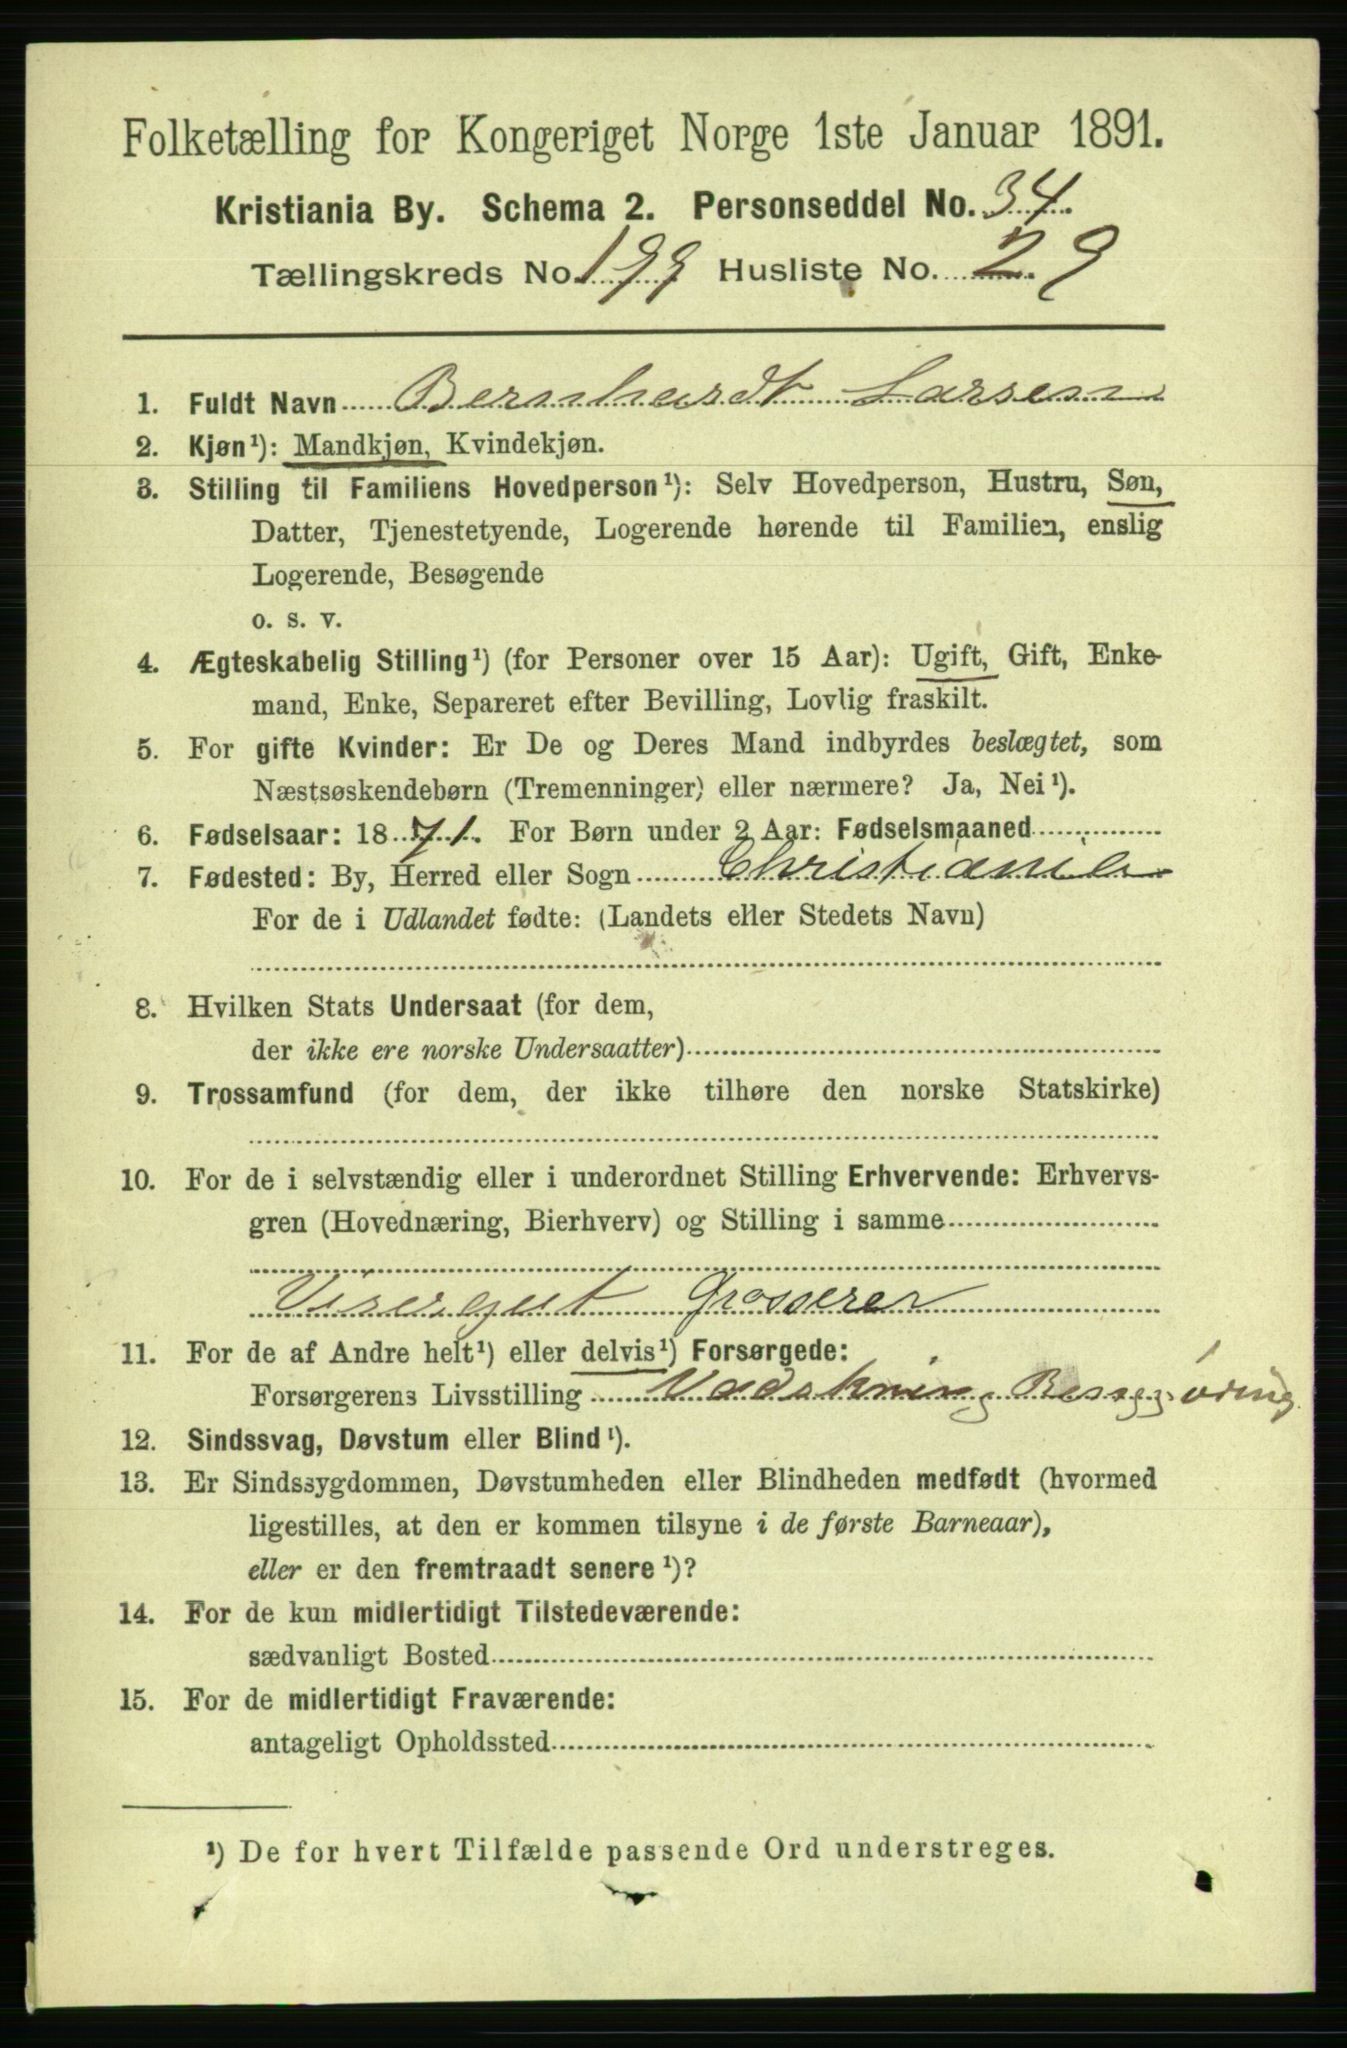 Folketælling for Kongeriget Norge 1ste Januar 1891.
Kristiania By. Schema 2. Personseddel No. 34.
Tællingskreds No. 199 Husliste No. 29
1. Fuldt Navn Bernhardt Larsen
2. Kjøn¹): Mandkjøn, Kvindekjøn.
3. Stilling til Familiens Hovedperson¹): Selv Hovedperson, Hustru, Søn,
Datter, Tjenestetyende, Logerende hørende til Familien, enslig
Logerende, Besøgende
o. s. v.
4. Ægteskabelig Stilling¹) (for Personer over 15 Aar): Ugift, Gift, Enke-
mand, Enke, Separeret efter Bevilling, Lovlig fraskilt.
5. For gifte Kvinder: Er De og Deres Mand indbyrdes beslægtet, som
Næstsøskendebørn (Tremenninger) eller nærmere? Ja, Nei¹).
6. Fødselsaar: 1871. For Børn under 2 Aar: Fødselsmaaned
7. Fødested: By, Herred eller Sogn Christiania
For de i Udlandet fødte: (Landets eller Stedets Navn)
8. Hvilken Stats Undersaat (for dem,
der ikke ere norske Undersaatter)
9. Trossamfund (for dem, der ikke tilhøre den norske Statskirke)
10. For de i selvstændig eller i underordnet Stilling Erhvervende: Erhvervs-
gren (Hovednæring, Bierhverv) og Stilling i samme
Visergut Grosserer
11. For de af Andre helt¹) eller delvis¹) Forsørgede:
Forsørgerens Livsstilling
12. Sindssvag, Døvstum eller Blind¹).
13. Er Sindssygdommen, Døvstumheden eller Blindheden medfødt (hvormed
ligestilles, at den er kommen tilsyne i de første Barneaar),
eller er den fremtraadt senere¹)?
14. For de kun midlertidigt Tilstedeværende:
sædvanligt Bosted
15. For de midlertidigt Fraværende:
antageligt Opholdssted
¹) De for hvert Tilfælde passende Ord understreges.